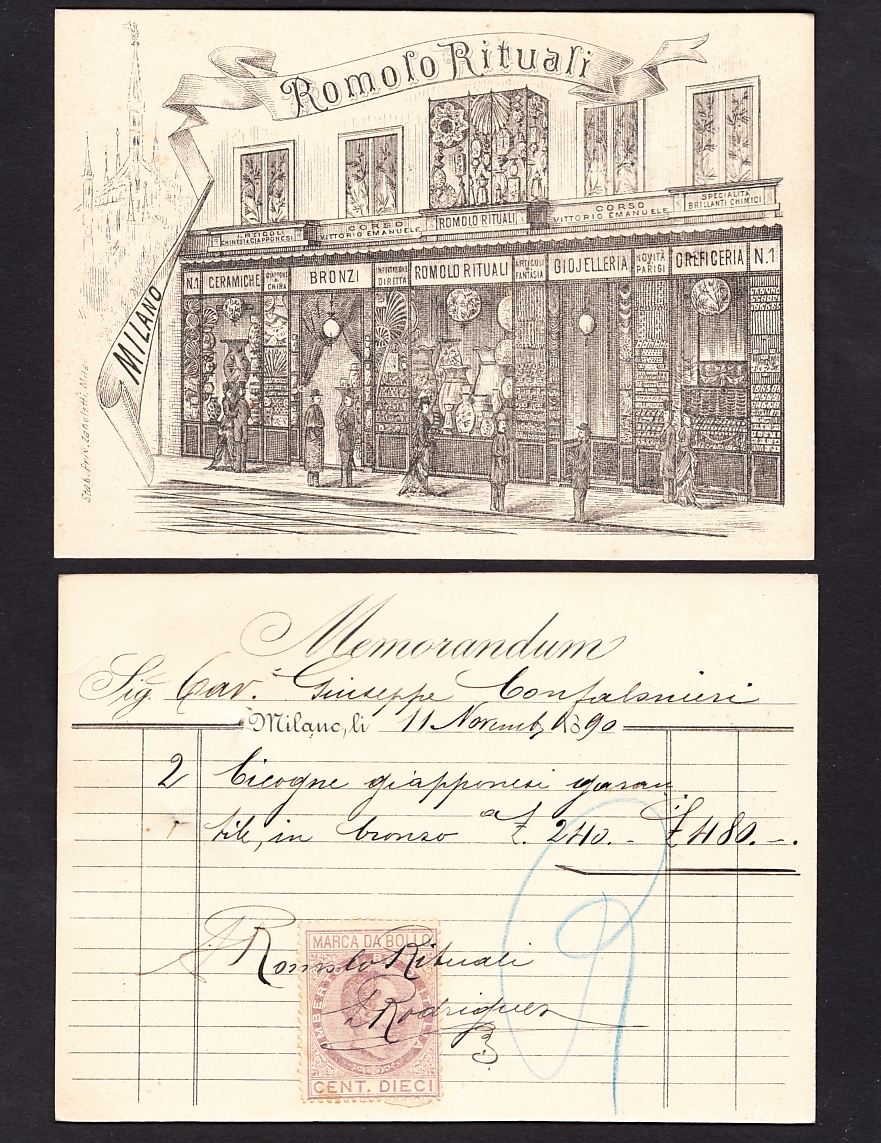 Romolo Rituali
MILANO
ARTICOLI
CHINESI & GIAPPONESI
CORSO
VITTORIO EMANUELE
ROMOLO RITUALI
CORSO
VITTORIO EMANUELE
SPECIALITÀ
BRILLANTI CHIMICI
N.1
CERAMICHE
GIAPPONE
CHINA
BRONZI
IMPORTAZIONE
DIRETTA
ROMOLO RITUALI
ARTICOLI
DI
FANTASIA
GIOJELLERIA
NOVITÀ
DI
PARIGI
OREFICERIA
N.1
Stab. Priv. Zanoletti, Mil.
Memorandum
Sig. Cav. Giuseppe Confalonieri
Milano, li 11 Novemb 1890
2 Cicogne giapponesi garan
tite, in bronzo a £. 240.- £ 480.-.
MARCA DA BOLLO
Romolo Rituali
UMBERTO ITALIA
Rodriguez
CENT. DIECI